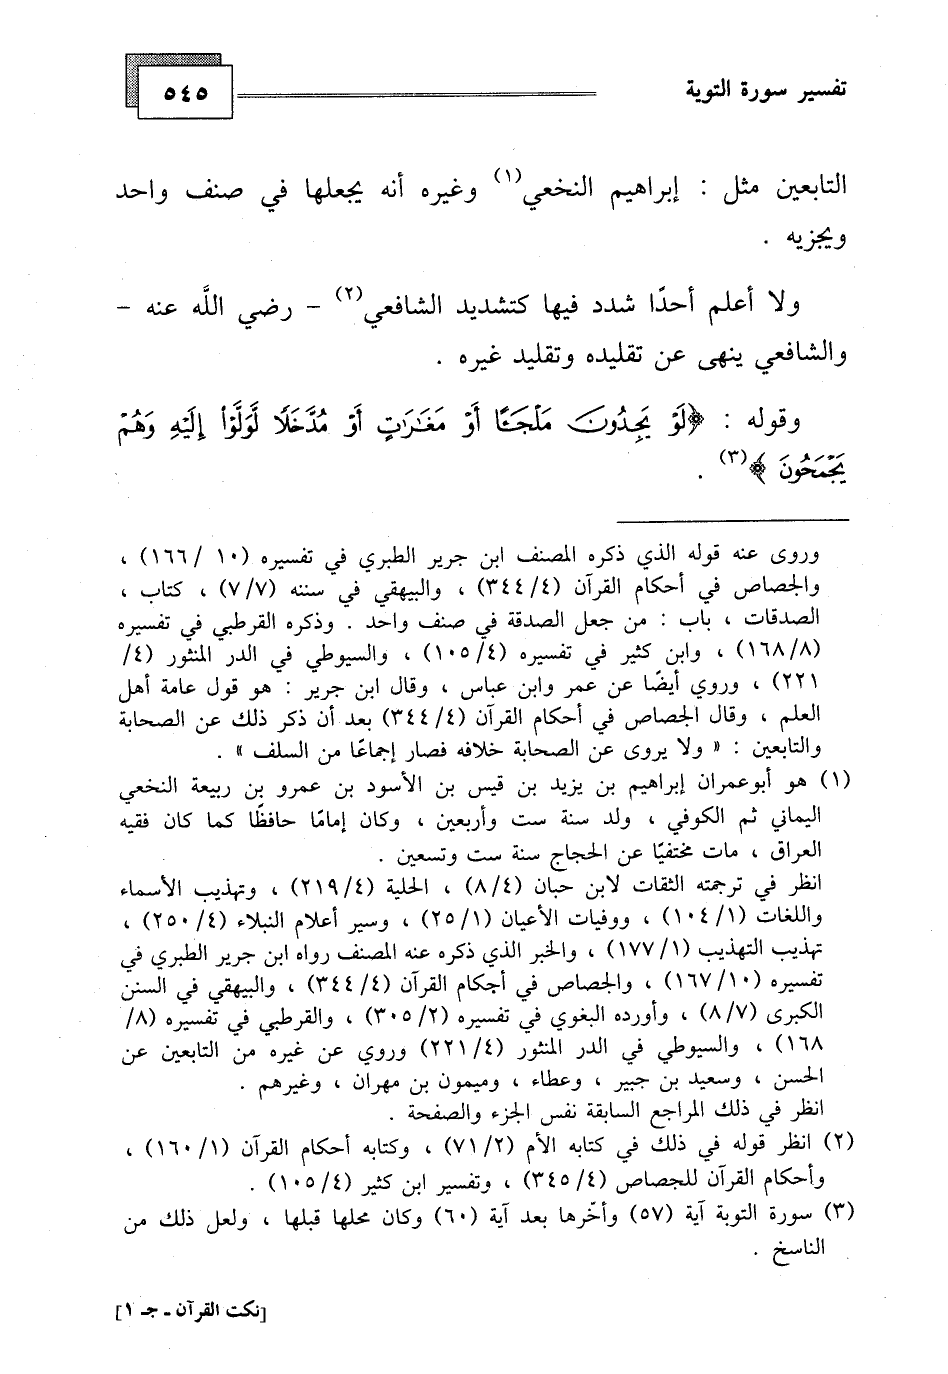 تفسير سورة التوبة
٥٤٥
التابعين مثل : إبراهيم النخعي(١) وغيره أنه يجعلها في صنف واحد
ويجزيه .
ولا أعلم أحدًا شدد فيها كتشديد الشافعي(٢) – رضي اللَّه عنه –
والشافعي ينهى عن تقليده وتقليد غيره .
وقوله : ﴿لَوْ يَجِدُونَ مَلْجَـًٔا أَوْ مَغَٰرَٰتٍ أَوْ مُدَّخَلًا لَّوَلَّوْا۟ إِلَيْهِ وَهُمْ
يَجْمَحُونَ ﴾(٣) .
وروى عنه قوله الذي ذكره المصنف ابن جرير الطبري في تفسيره (١٠ /١٦٦) ،
والجصاص في أحكام القرآن (٣٤٤/٤) ، والبيهقي في سننه (٧/٧) ، كتاب ،
الصدقات ، باب : من جعل الصدقة في صنف واحد . وذكره القرطبي في تفسيره
(١٦٨/٨) ، وابن كثير في تفسيره (١٠٥/٤) ، والسيوطي في الدر المنثور (٤/
٢٢١) ، وروي أيضًا عن عمر وابن عباس ، وقال ابن جرير : هو قول عامة أهل
العلم ، وقال الجصاص في أحكام القرآن (٣٤٤/٤) بعد أن ذكر ذلك عن الصحابة
والتابعين : « ولا يروى عن الصحابة خلافه فصار إجماعًا من السلف » .
(١) هو أبوعمران إبراهيم بن يزيد بن قيس بن الأسود بن عمرو بن ربيعة النخعي
اليماني ثم الكوفي ، ولد سنة ست وأربعين ، وكان إمامًا حافظًا كما كان فقيه
العراق ، مات مختفيًا عن الحجاج سنة ست وتسعين .
انظر في ترجمته الثقات لابن حبان (٨/٤) ، الحلية (٢١٩/٤) ، وتهذيب الأسماء
واللغات (١٠٤/١) ، ووفيات الأعيان (٢٥/١) ، وسير أعلام النبلاء (٢٥٠/٤) ،
تهذيب التهذيب (١٧٧/١) ، والخبر الذي ذكره عنه المصنف رواه ابن جرير الطبري في
تفسيره (١٦٧/١٠) ، والجصاص في أحكام القرآن (٣٤٤/٤) ، والبيهقي في السنن
الكبرى (٨/٧) ، وأورده البغوي في تفسيره (٣٠٥/٢) ، والقرطبي في تفسيره (٨/
١٦٨) ، والسيوطي في الدر المنثور (٢٢١/٤) وروي عن غيره من التابعين عن
الحسن ، وسعيد بن جبير ، وعطاء ، وميمون بن مهران ، وغيرهم .
انظر في ذلك المراجع السابقة نفس الجزء والصفحة .
(٢) انظر قوله في ذلك في كتابه الأم (٧١/٢) ، وكتابه أحكام القرآن (١٦٠/١) ،
وأحكام القرآن للجصاص (٣٤٥/٤) ، وتفسير ابن كثير (١٠٥/٤) .
(٣) سورة التوبة آية (٥٧) وأخّرها بعد آية (٦٠) وكان محلها قبلها ، ولعل ذلك من
الناسخ .
[نكت القرآن ـ جـ ١]